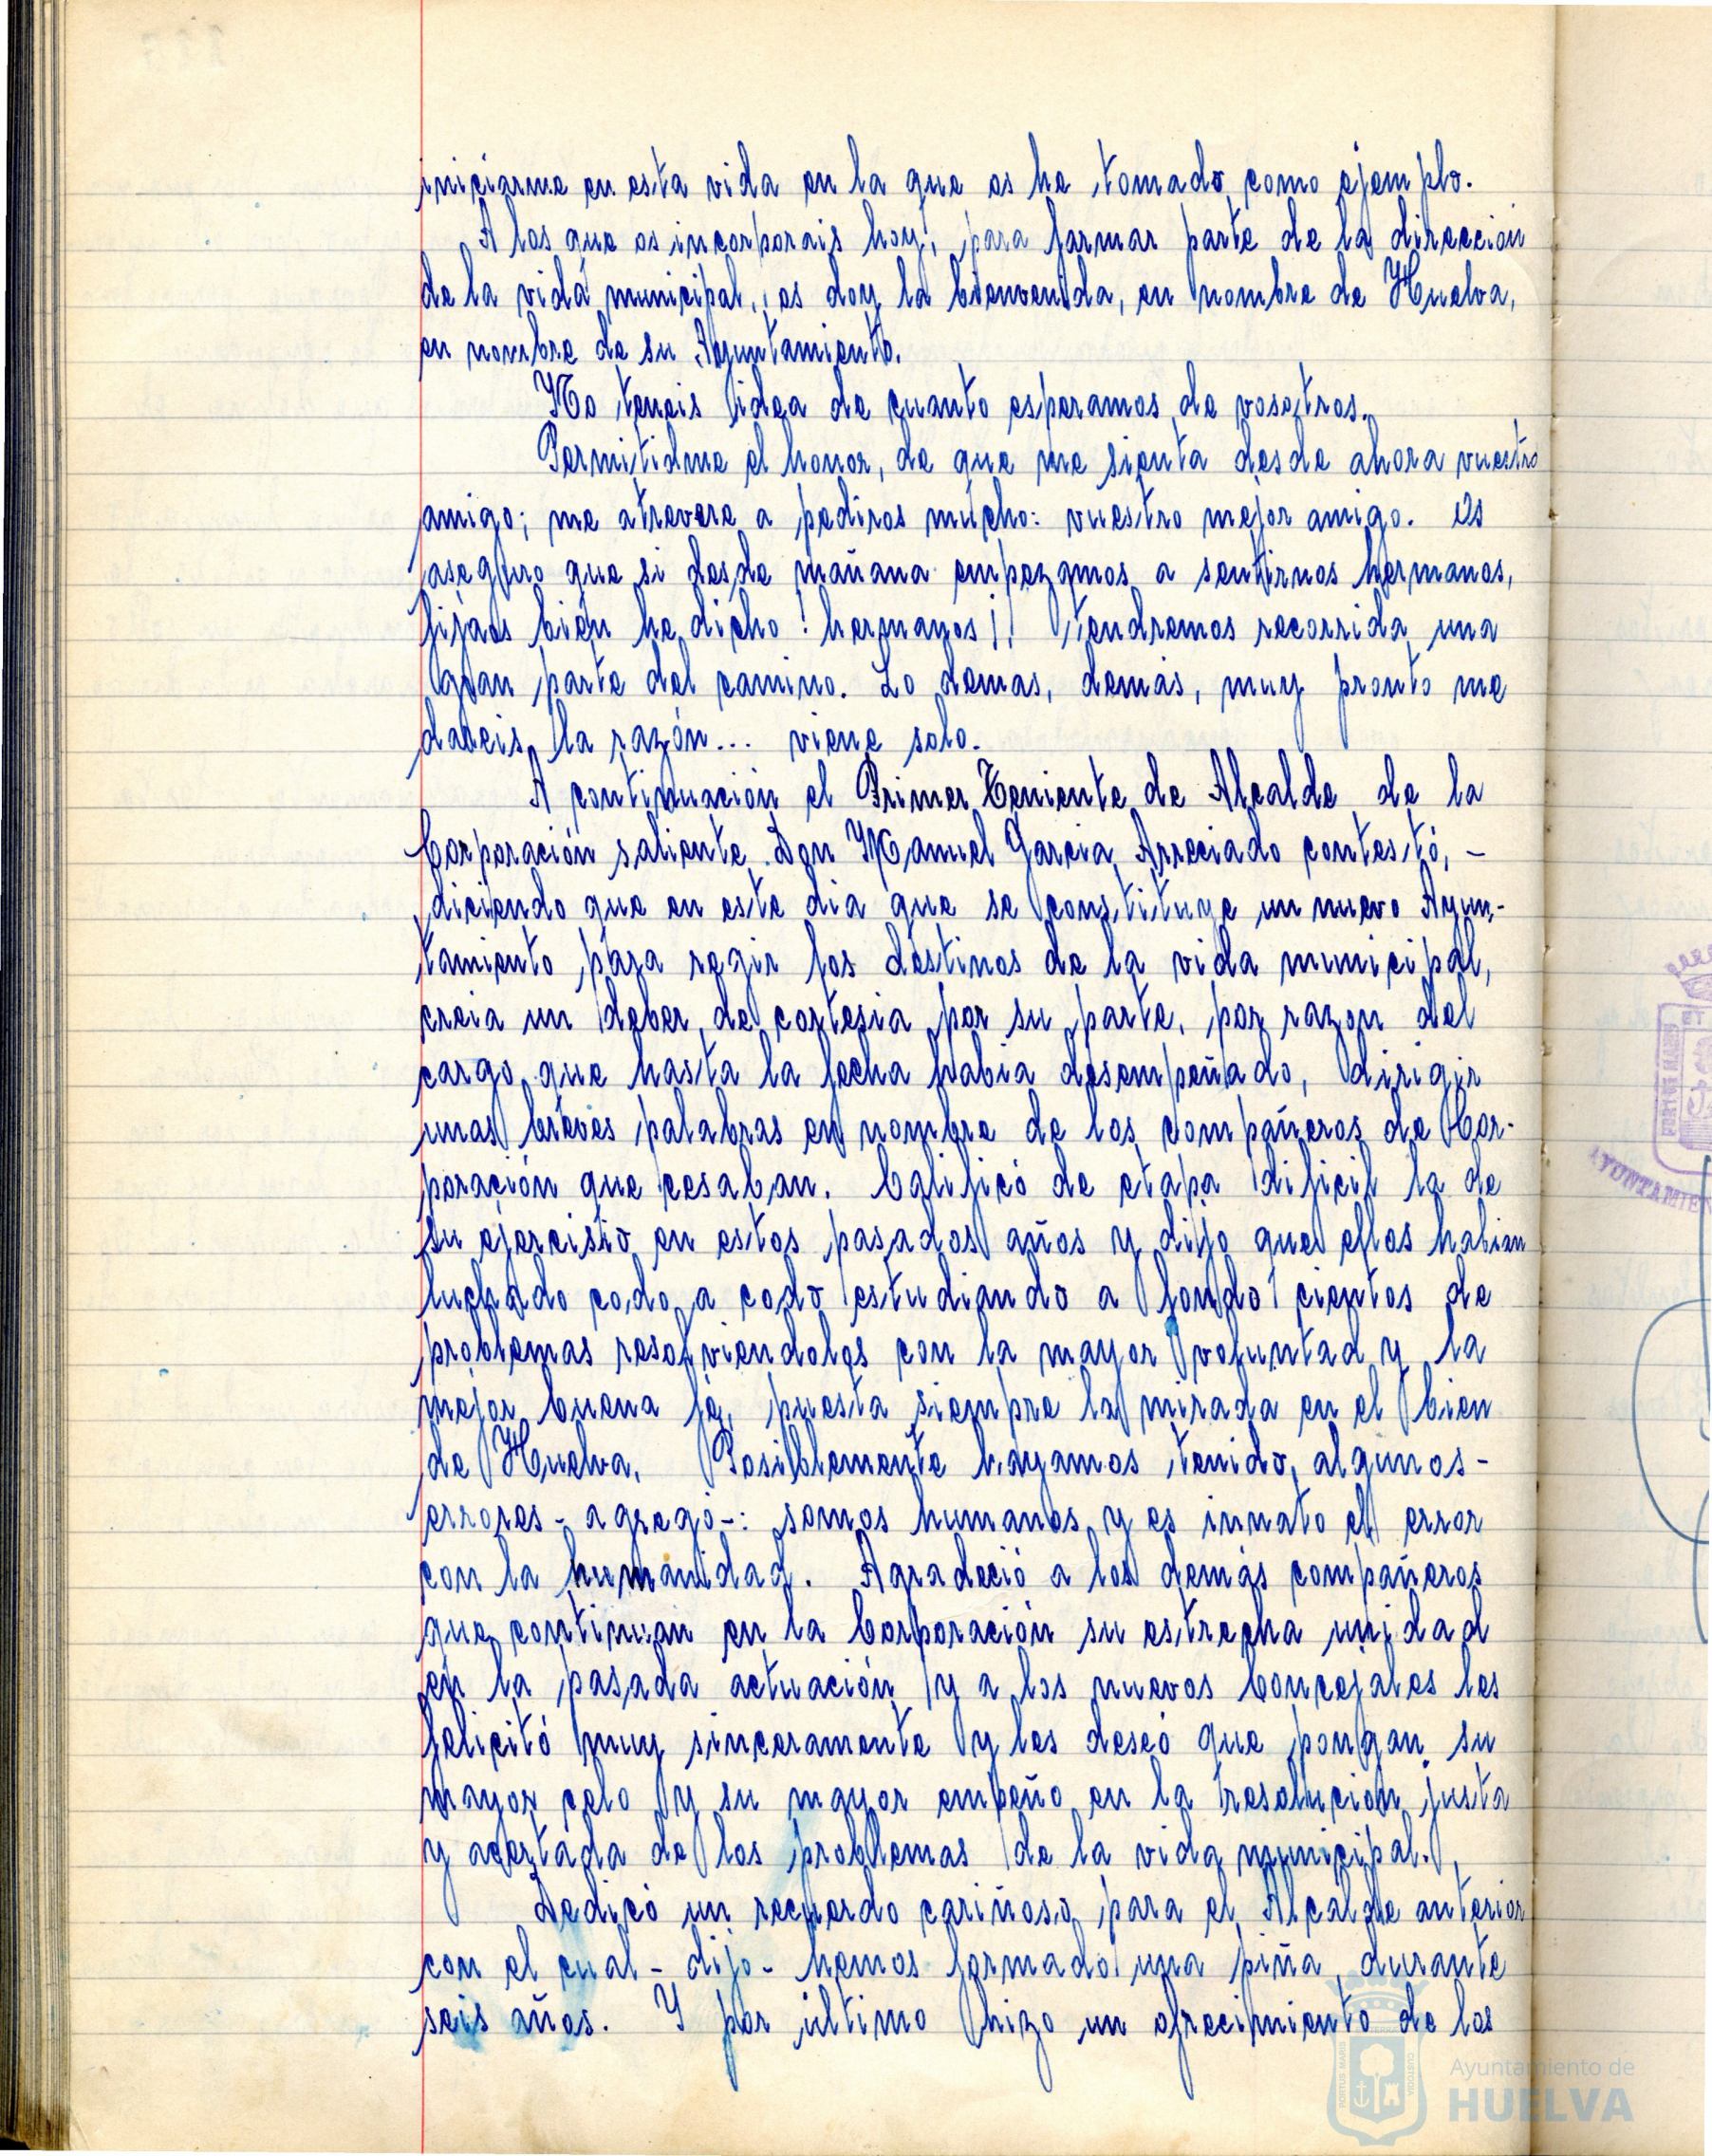 iniciarme en esta vida en la que os he tomado como ejemplo.
A los que os incorporais hoy, para formar parte de la direccion
de la vida municipal, os doy la bienvenida, en nombre de Huelva,
en nombre de su Ayuntamiento.
No teneis idea de cuanto esperamos de vosotros.
Permitidme el honor, de que me sienta desde ahora vuestro
amigo; me atrevere a pediros mucho: vuestro mejor amigo. Os
aseguro que si desde mañana empezamos a sentirnos hermanos,
fijaos bien he dicho ! hermanos ¡! tendremos recorrida una
gran parte del camino. Lo demas, demas, muy pronto me
dareis la razón... viene solo.
A continuación el Primer Teniente de Alcalde de la
Corporación saliente Don Manuel Garcia Arreciado contestó, -
diciendo que en este dia que se constituye un nuevo Ayun-
tamiento para regir los destinos de la vida municipal,
creia un deber de cortesia por su parte, por razon del
cargo que hasta la fecha habia desempeñado, dirigir
unas breves palabras en nombre de los compañeros de Cor-
poración que cesaban. Calificó de etapa dificil la de
su ejercisio en estos pasados años y dijo que ellos habian
luchado codo a codo estudiando a fondo cientos de
problemas resolviendolos con la mayor voluntad y la
mejor buena fé, puesta siempre la mirada en el bien
de Huelva. Posiblemente hayamos tenido algunos -
errores - agregó -: somos humanos y es innato el error
con la humanidad. Agradeció a los demás compañeros
que continuan en la Corporación su estrecha unidad
en la pasada actuación y a los nuevos Concejales les
felicitó muy sinceramente y les deseó que pongan su
mayor celo y su mayor empeño en la resolucion justa
y acertada de los problemas de la vida municipal.
Dedicó un recuerdo cariñoso para el Alcalde anterior
con el cual - dijo - hemos formado una piña durante
seis años. Y por último hizo un ofrecimiento de los
AYUNTAMIEN
Ayuntamiento de
HUELVA